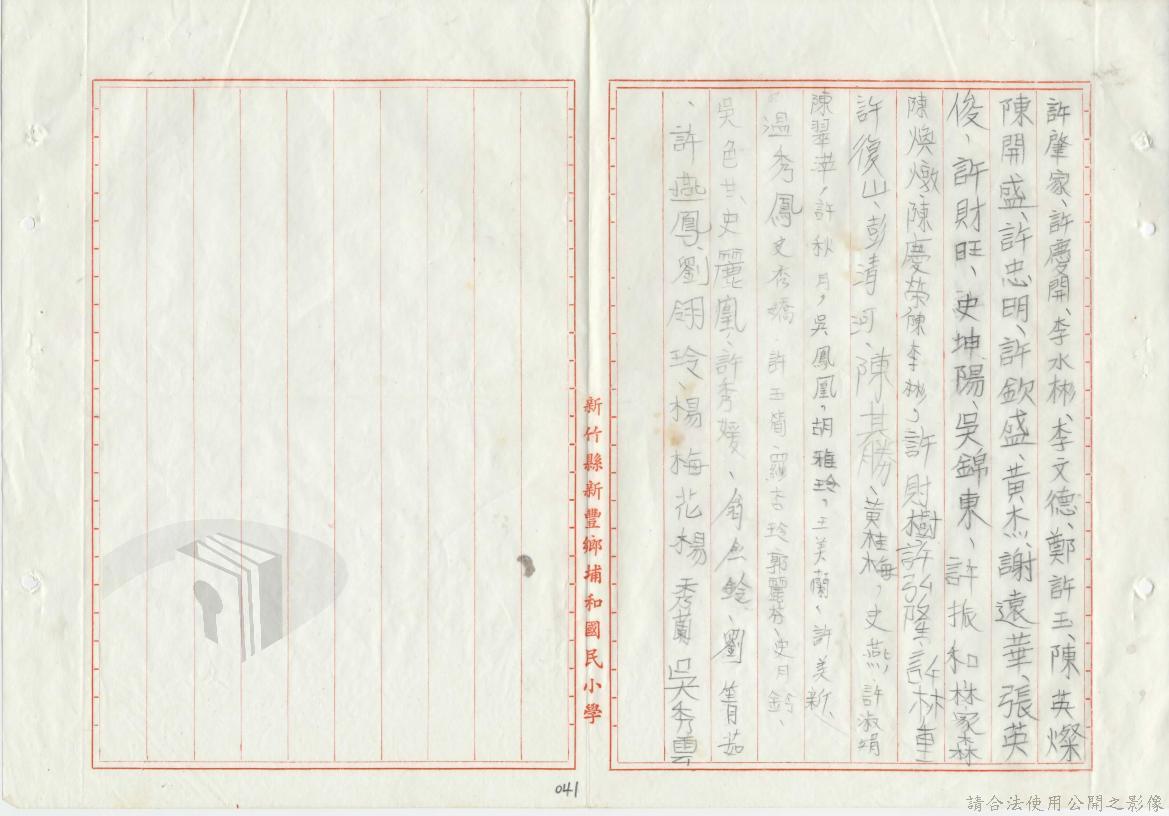 許肇家、許慶開、李水彬、李文德、鄭許玉、陳英燦
陳開盛、許忠明、許欽盛、黃杰、謝遠華、張英
俊、許財旺、史坤陽、吳錦東、許振和林家森
陳煥燉、陳慶榮陳李彬，許財樹許弘隆、許林重
許復山、彭清河、陳其勝、黃桂梅，史燕，許淑娟
陳翠苹，許秋月，吳鳳凰，胡雅玲，王美蘭、許美新、
溫秀鳳史秀嬌許玉筒、羅杏玲郭麗芬、史月鈴、
吳色共、史麗凰、許秀媛、鈴、劉菁茹
、許燕鳳、劉翎玲、楊梅花楊秀蘭吳秀雲
新竹縣新豐鄉埔和國民小學
041
請合法使用公開之影像